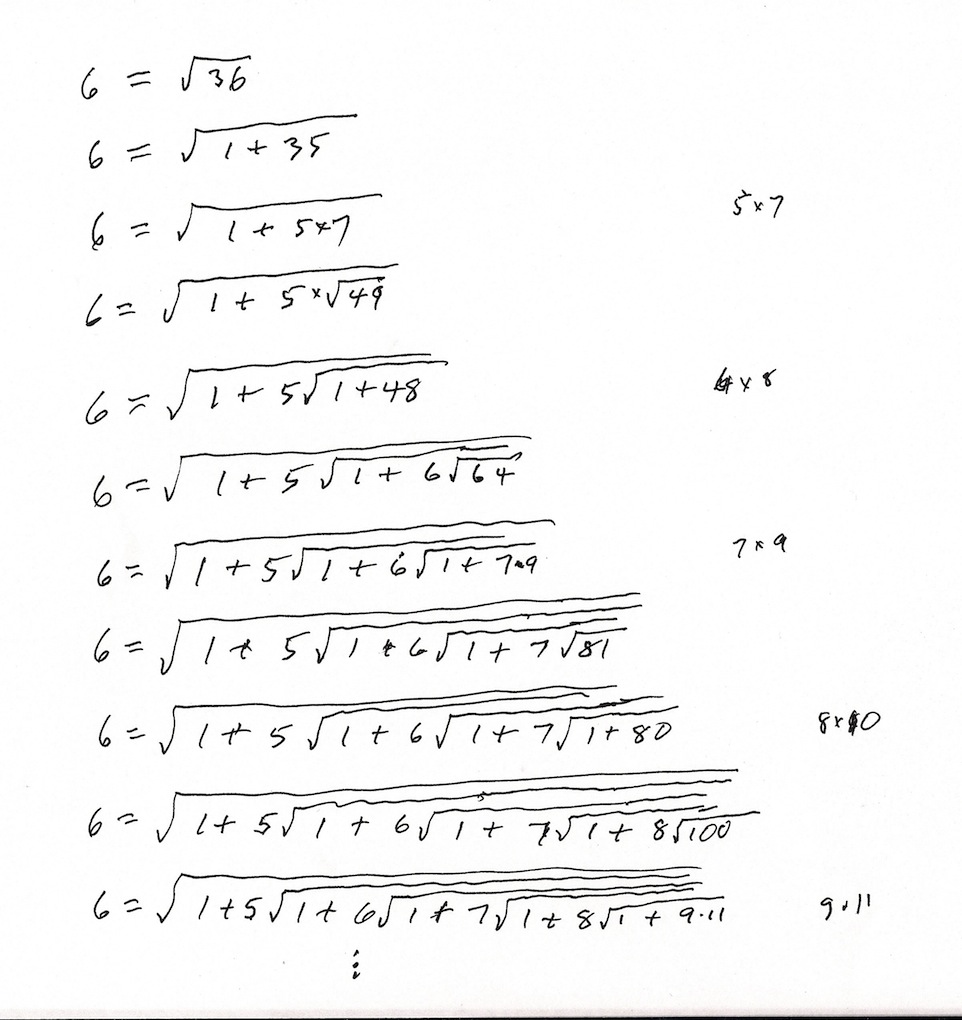 6 = √36
6 = √(1 + 35)
6 = √(1 + 5×7)
5×7
6 = √(1 + 5×√49)
6 = √(1 + 5√(1 + 48))
6 × 8
6 = √(1 + 5√(1 + 6√64))
6 = √(1 + 5√(1 + 6√(1 + 7·9)))
7 × 9
6 = √(1 + 5√(1 + 6√(1 + 7√81)))
6 = √(1 + 5√(1 + 6√(1 + 7√(1 + 80))))
8×10
6 = √(1 + 5√(1 + 6√(1 + 7√(1 + 8√100))))
6 = √(1 + 5√(1 + 6√(1 + 7√(1 + 8√(1 + 9·11)))))
9·11
⋮